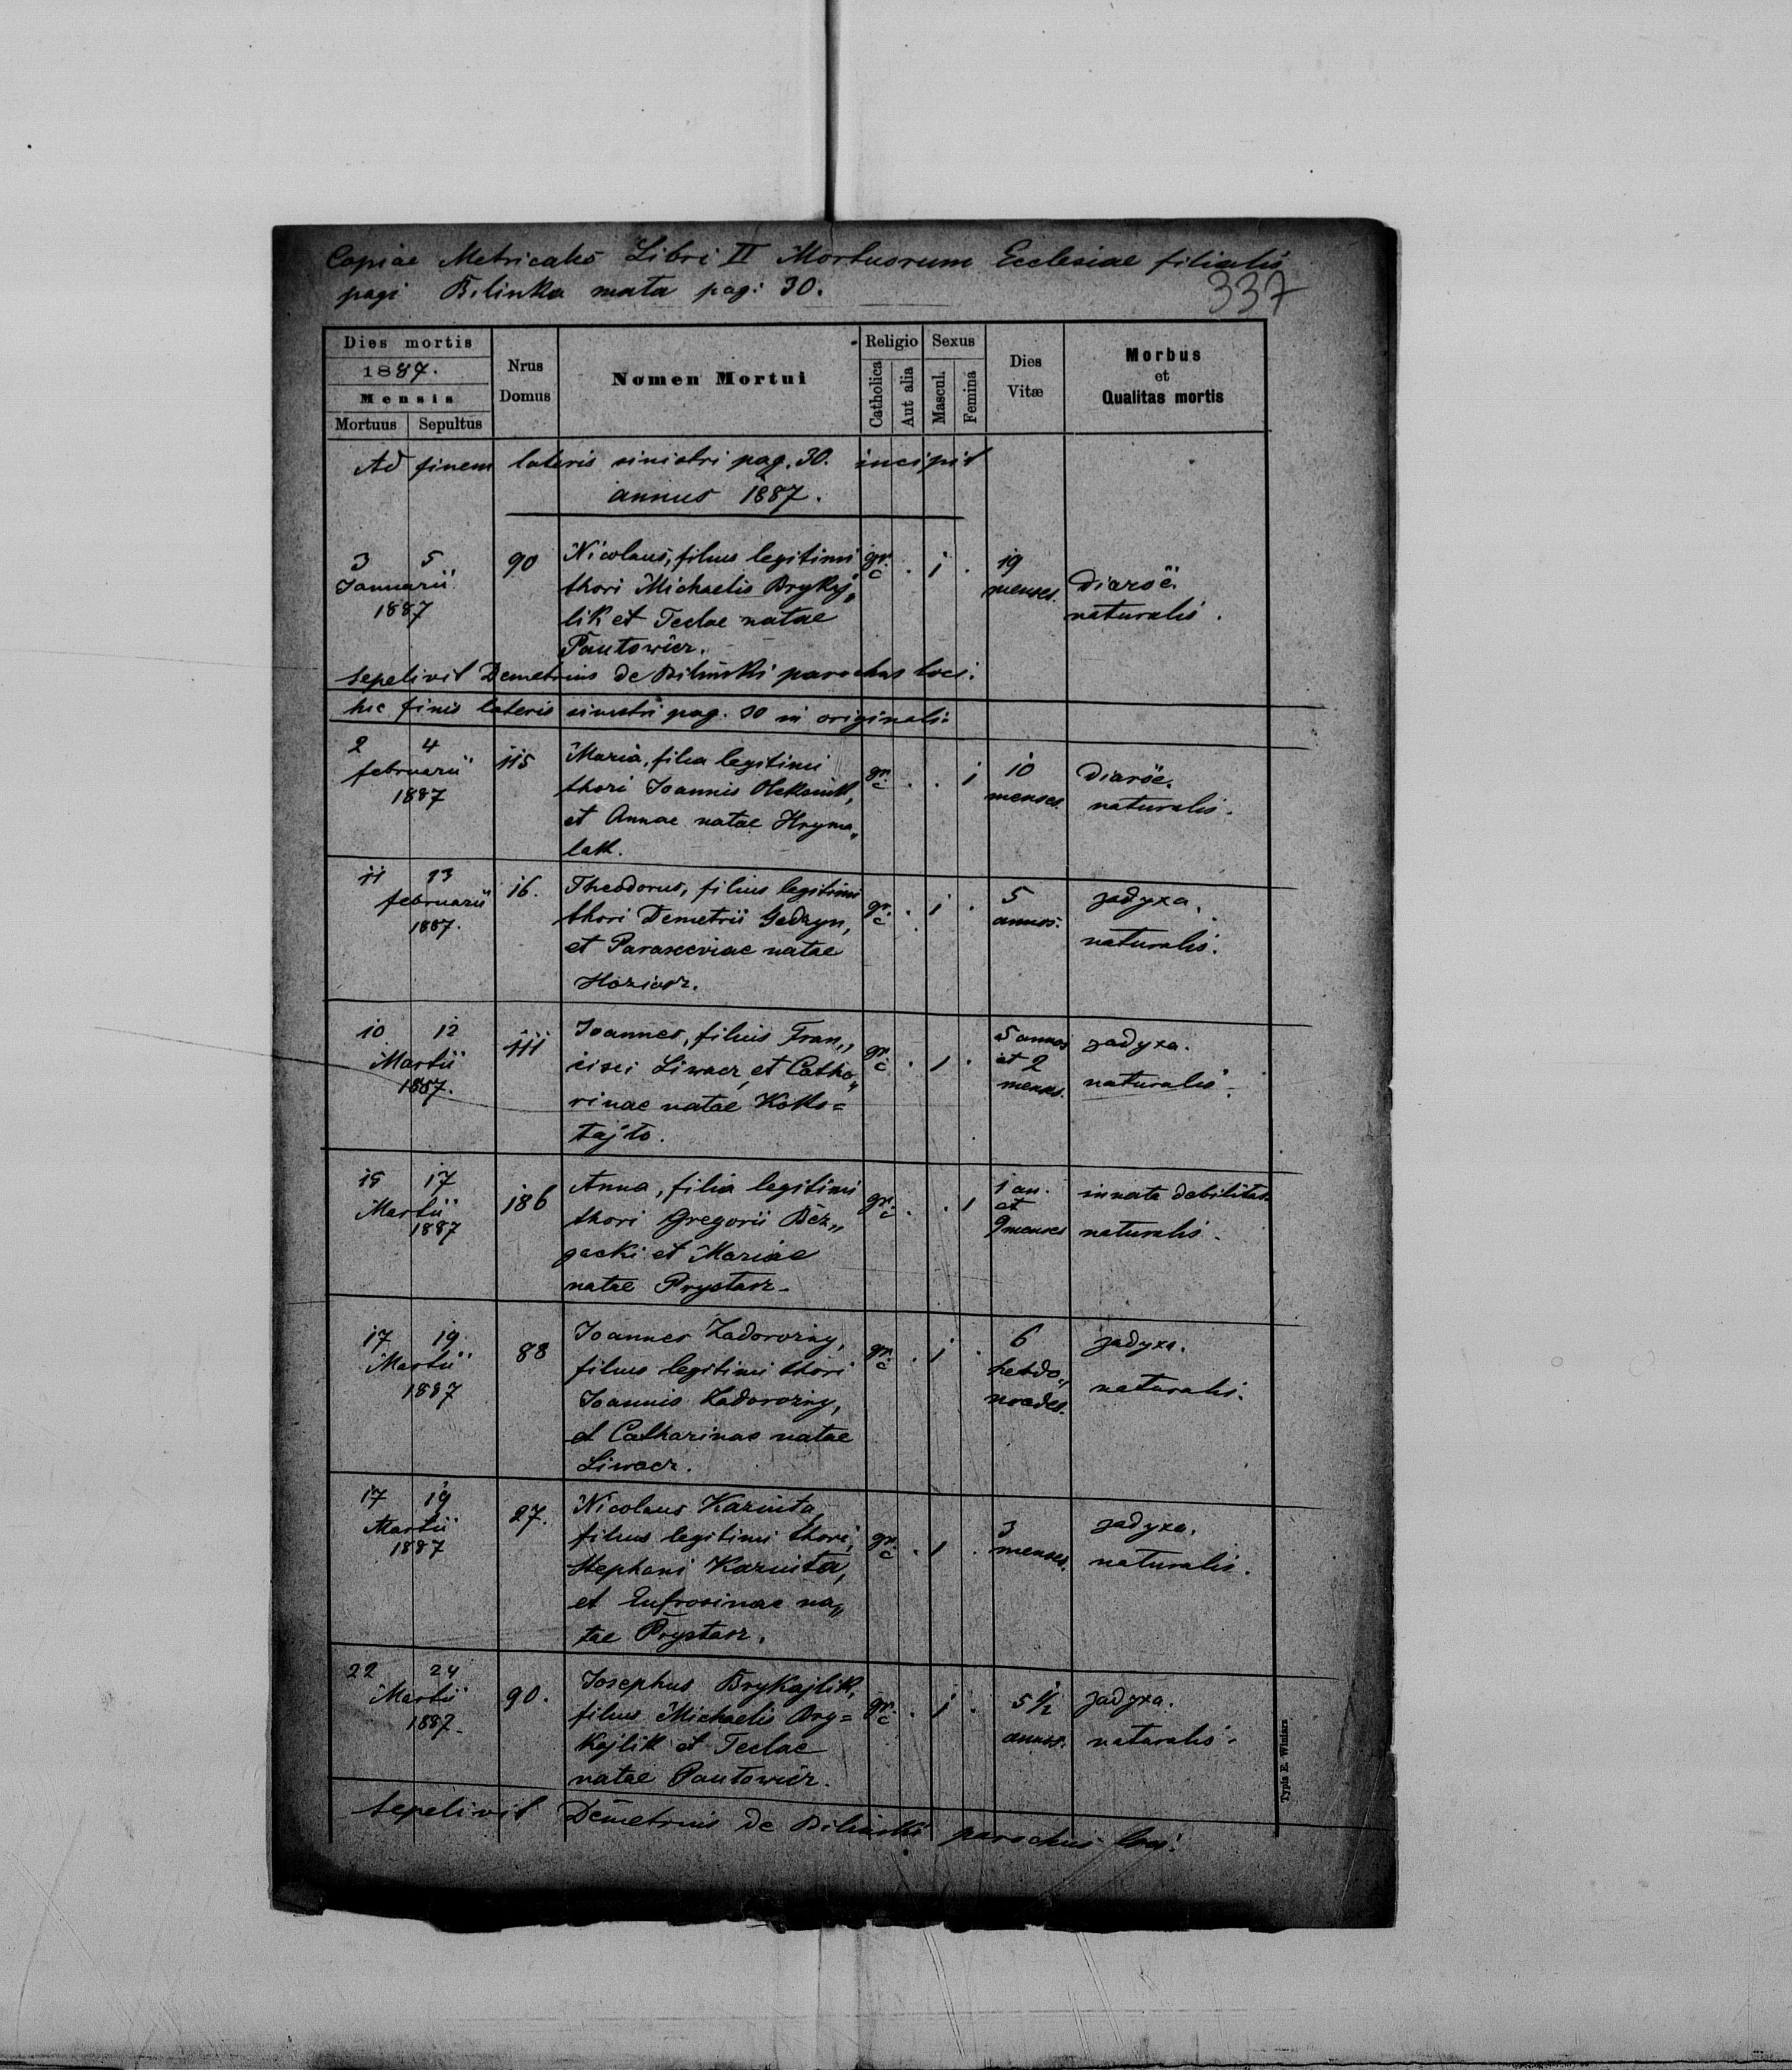 Copiae Metricales Libri II Mortuorum Ecclesiae filialis
pagi Bilinka mała pag: 30.
337
Dies mortis
1887.
Mensis
Mortuus Sepultus
Nrus
Domus
Nomen Mortui
Religio
Catholica
Aut alia
Sexus
Mascul.
Femina
Dies
Vitæ
Morbus
et
Qualitas mortis
Ad finem lateris sinistri pag. 30. incipit
annus 1887.
3 5
Januarii
1887
90
Nicolaus, filius legitimi
thori Michaelis Brykaj„
lik et Teclae natae
Pautowicz.
gr. c . 1 .
19
menses.
Diaröe.
naturalis.
sepelivit Demetrius de Biliński parochus loci.
hic finis lateris sinistri pag. 30 in originali.
2 4
februarii
1887
115
Maria, filia legitimi
thori Joannis
et Annae natae Hryma„
lak.
gr. c . . 1
10
menses.
Diaröe.
naturalis.
11 13
februarii
1887.
16.
Theodorus, filius legitimi
thori Demetrii Gedzyn,
et Parasceviae natae
gr. c . 1 .
5
annos.
zadyxa.
naturalis.
10 12
Martii
1887.
111
Joannes, filius Fran„
cisci Liwacz, et Catha„
rinae natae Kołło=
tajło.
gr. c . 1 .
5 annos
et 2
menses.
zadyxa.
naturalis.
15 17
Martii
1887
186
Anna, filia legitimi
thori Gregorii Bez„
gacki et Mariae
natae Prystasz.
gr. c . . 1
1 an.
et
9 menses
innata debilitas.
naturalis.
17 19
Martii
1887
88
Joannes Zadorozny,
filius legitimi thori
Joannis Zadorozny,
et Catharinae natae
Liwacz.
gr. c . 1 .
6
hebdo„
mades.
zadyxa.
naturalis.
17 19
Martii
1887
27.
Nicolaus Kazmita,
filius legitimi thori,
Stephani Kazmita,
et Eufrosinae na„
tae Prystasz.
gr. c . 1 .
3
menses.
zadyxa.
naturalis.
22 24
Martii
1887.
90.
Josephus Brykajlik,
filius Michaelis Bry=
kajlik et Teclae
natae Pautowicz.
gr. c . 1 .
5 1/2
annos.
zadyxa.
naturalis.
sepelivit Demetrius de Biliński parochus loci.
Typis E. Winiarz